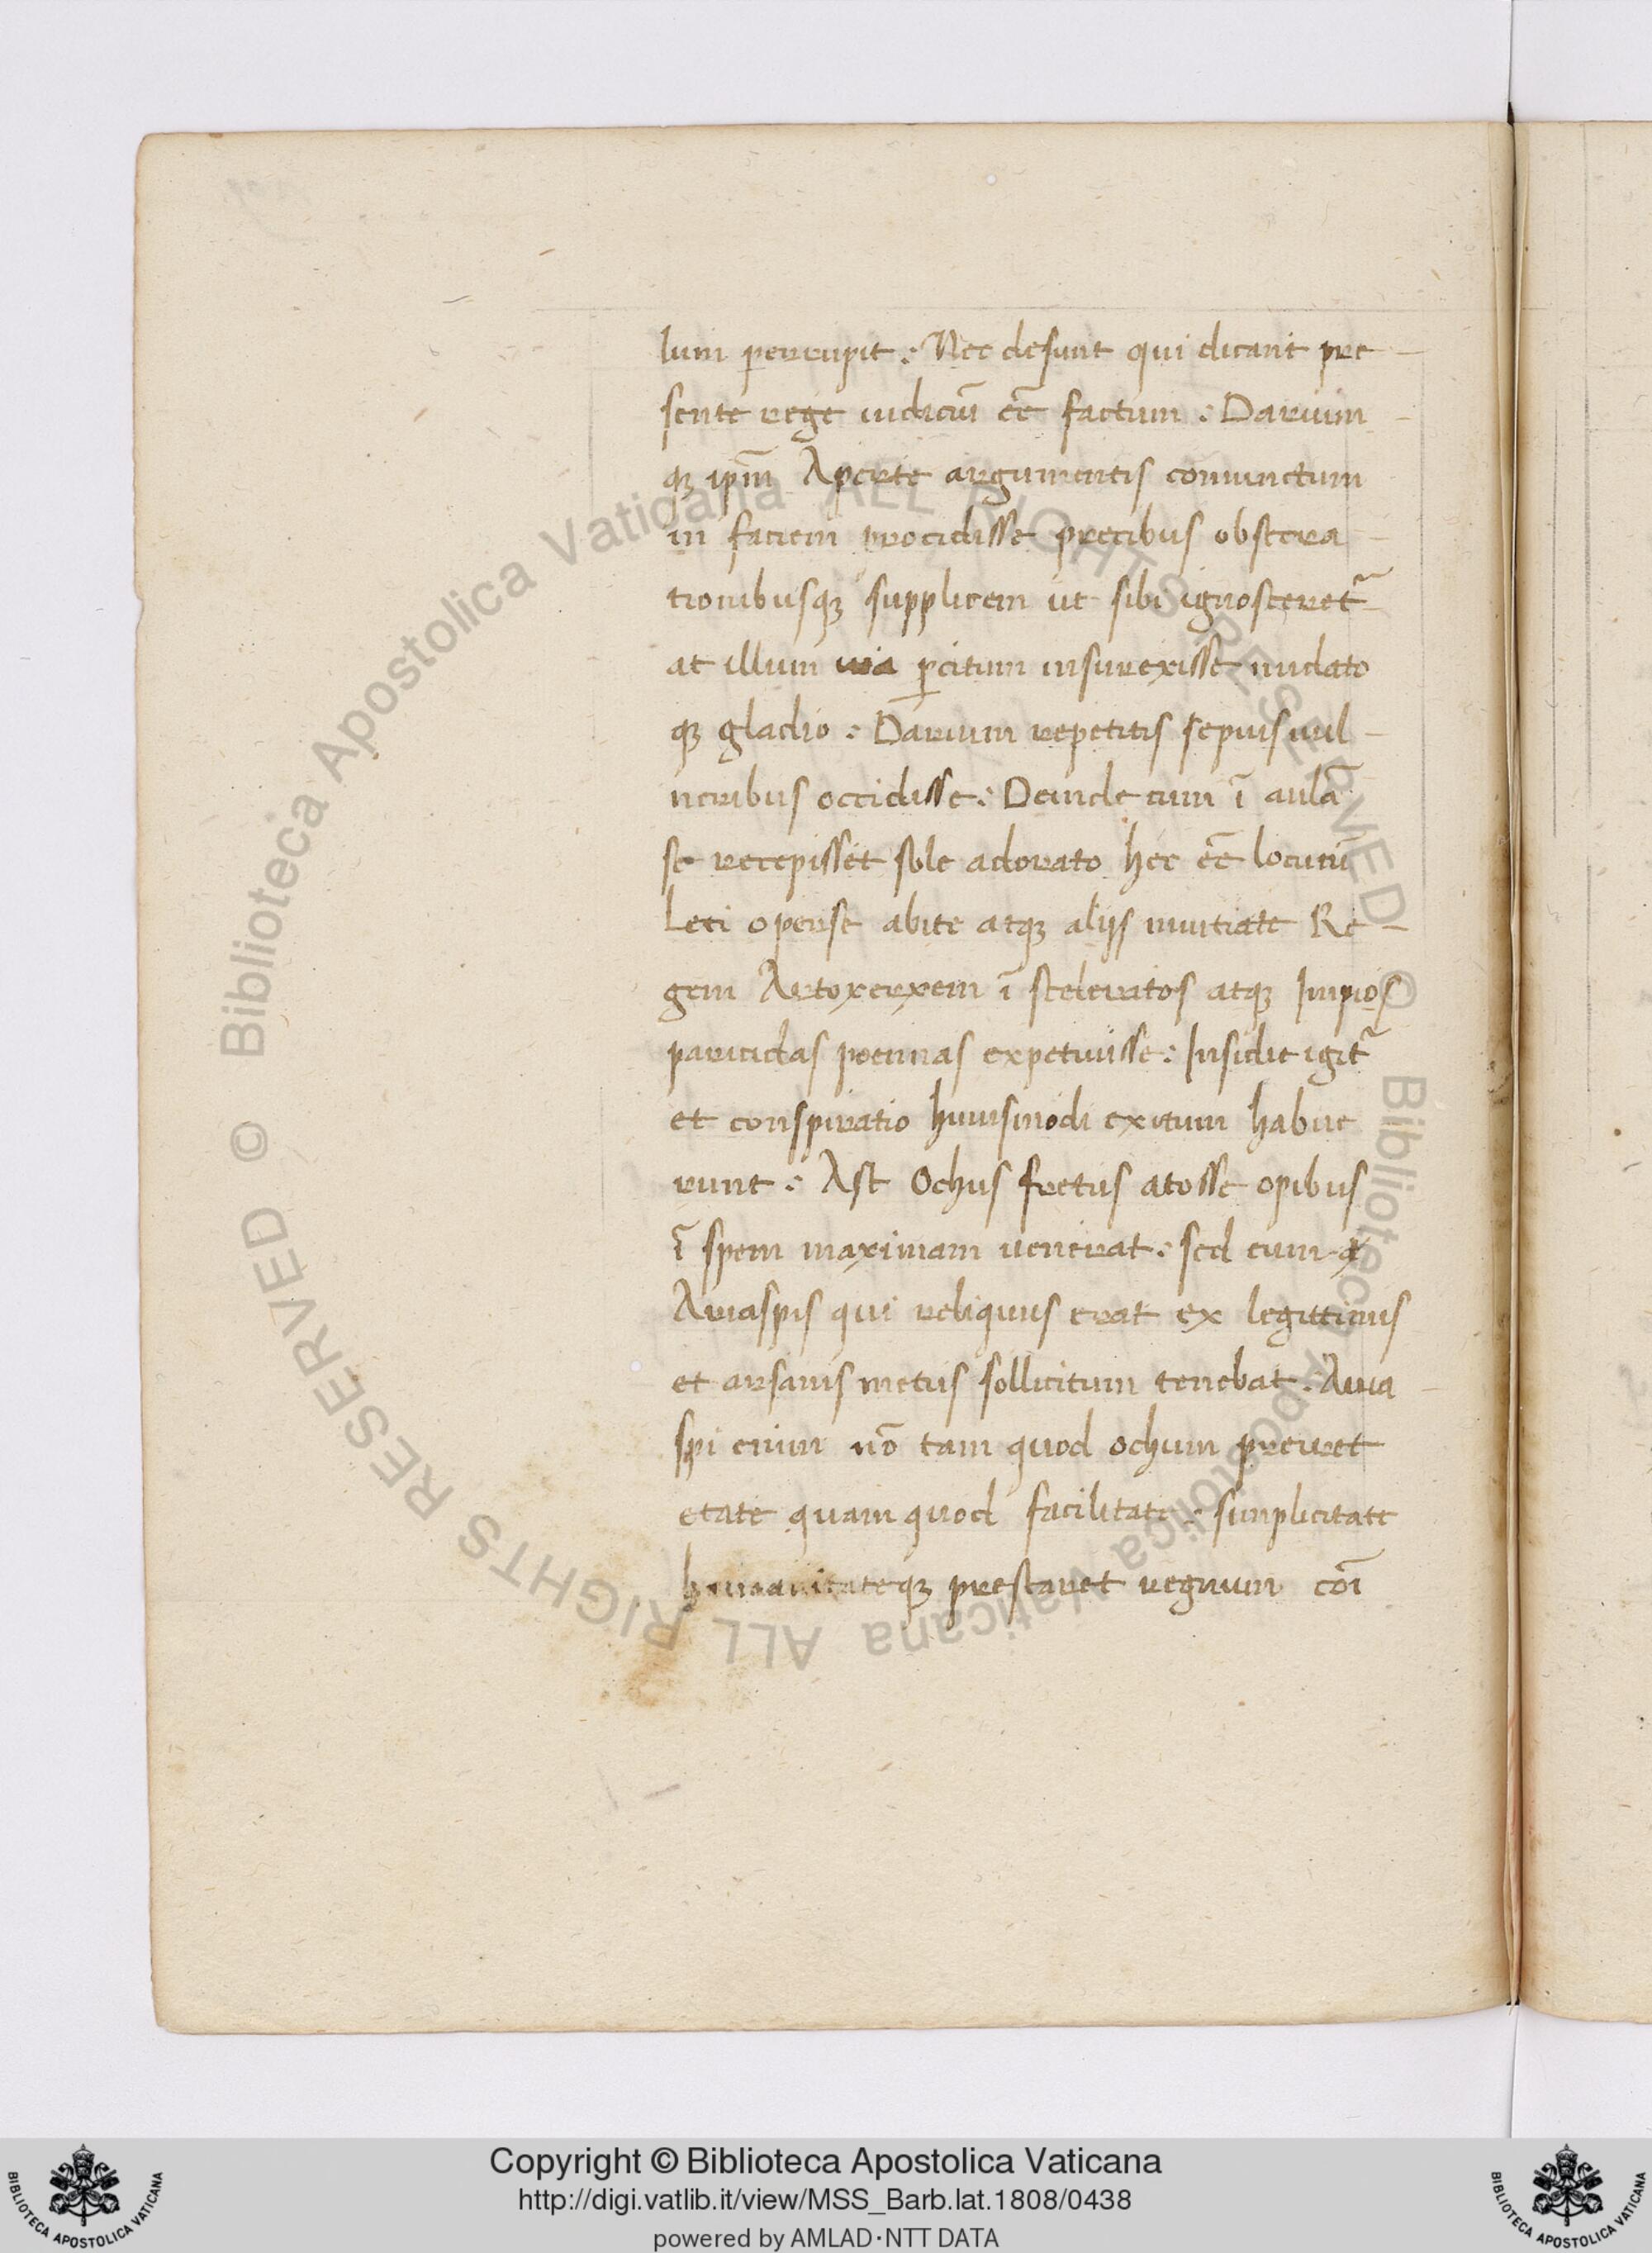 lum perrupit : Nec desunt qui dicant pre
sente rege iudiciū eē factum : Darium
qȝ ipm̄ Aperte argumentis conuinctum
in faciem procidisse precibus obsecra
tionibusqȝ supplicem ut sibi ignosceret᷑
at illum uia ꝑcitum insurexisse nudato
qȝ gladio : Darium repetitis sepius uul
neribus occidisse : Deinde cum ī aulā
se recepisset sole adorato hec eē locutū
Leti operse abite atqȝ alijs nuntiate Re
gem Artoxerxem ī sceleratos atqȝ Impios
paricidas poennas expetiuisse : Insidie igit᷑
et conspiratio huiusmodi exitum habue
runt : Ast Ochus fretus atosse opibus
ī spem maximam uenerat : sed eum
Ariaspis qui reliquus erat ex legittimis
et arsanis metus sollicitum tenebat : Aria
spi enim nō tam quod ochum preiret
etate quam quod facilitate : simplicitate
humanitateqȝ prestaret regnum cōi
Copyright © Biblioteca Apostolica Vaticana
http://digi.vatlib.it/view/MSS_Barb.lat.1808/0438
powered by AMLAD·NTT DATA
BIBLIOTECA APOSTOLICA VATICANA
BIBLIOTECA APOSTOLICA VATICANA
© Biblioteca Apostolica Vaticana ALL RIGHTS RESERVED
© Biblioteca Apostolica Vaticana ALL RIGHTS RESERVED